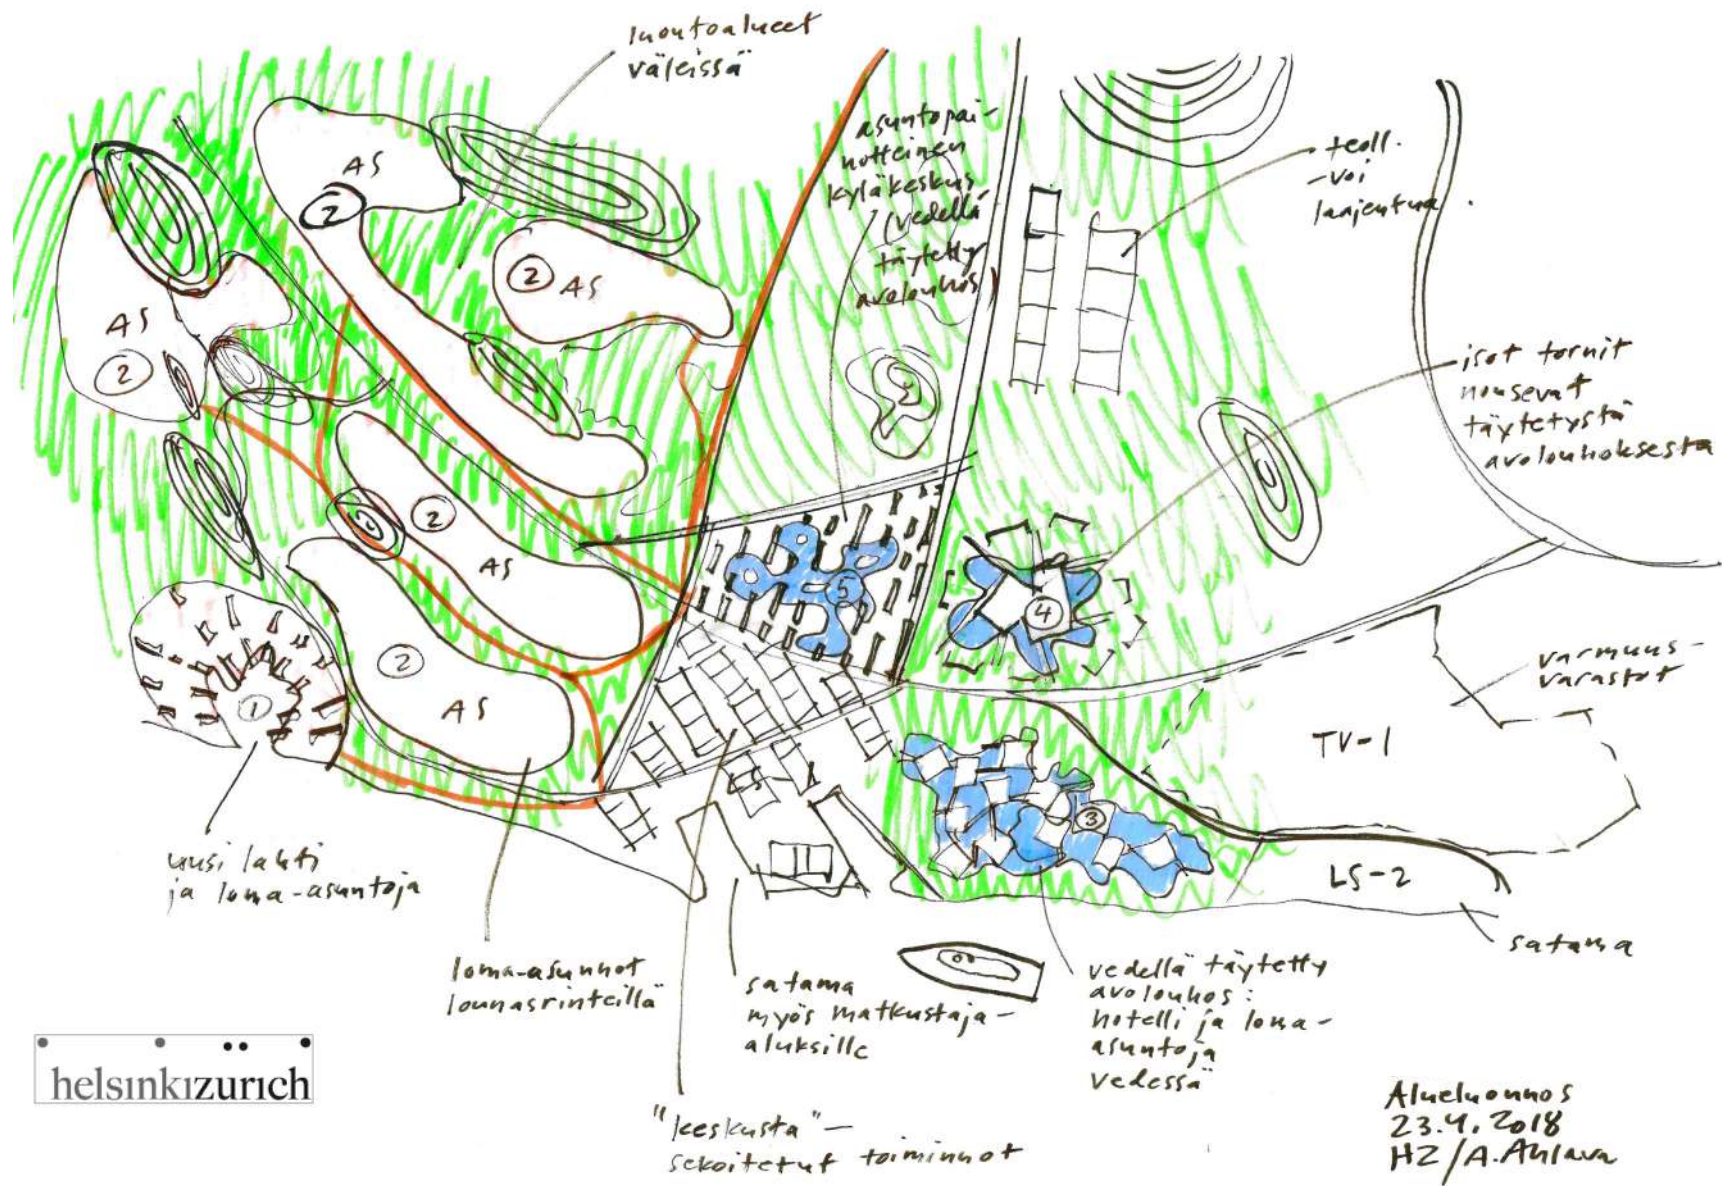 luontoalueet
väleissä
asuntopai-
notteinen
kyläkeskus
(vedellä
täytetty
avolouhos)
teoll.
-voi
laajentua.
AS
2
2
AS
AS
2
isot tornit
nousevat
täytetystä
avolouhoksesta
2
AS
5
4
2
AS
1
varmuus-
varastot
TV-1
LS
3
LS-2
uusi lahti
ja loma-asuntoja
satama
loma-asunnot
lounasrinteillä
satama
myös matkustaja-
aluksille
vedellä täytetty
avolouhos:
hotelli ja loma-
asuntoja
vedessä
"keskusta"-
sekoitetut toiminnot
helsinkizurich
Alueluonnos
23.4.2018
HZ/A.Ahlava